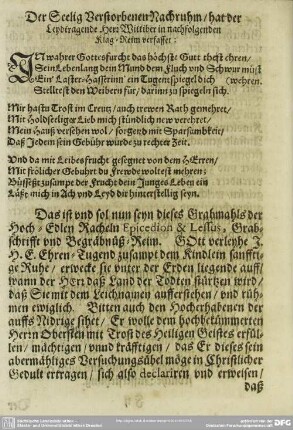 Der Seelig Verstorbenen Nachruhm / hat der
Leydtragende Herr Wittiber in nachfolgenden
Klag-Reim verfasset:
IN wahrer Gottesfurcht das höchste Gutt
Sein Lebenlang dein Mund dem Fluch und Schwur müst
Ein' Laster-Hasserinn' ein Tugentspiegel dich (wehren.
Stellest den Weibern für / darinn zu spiegeln sich.
Mir hastu Trost im Creutz / auch trewen Rath gemehret /
Mit Holdseeliger Lieb mich stündlich new verehret /
Mein Hauß versehen wol / sorgend mit Sparsambkeit /
Daß Jedem sein Gebühr würde zu rechter Zeit.
Und da mit Leibes frucht gesegnet von dem HErren /
Mit frölicher Gebuhrt du Frewde woltest mehren;
zusampt der Frucht dein Junges Leben ein
mich in Ach und Leyd dir hinterstellig seyn.
Das ist und sol nun seyn dieses Grabmahls der
Hoch-Edlen Racheln Epicedion & Lessus, Grab-
schrifft und Begräbnüß-Reim. GOtt verleyhe J.
H. E. Ehren-Tugend zusampt dem Kindlein sanffti-
ge Ruhe / erwecke sie unter der Erden liegende auff /
wann der HErr daß Land der Todten stürtzen wird /
daß Sie mit dem Leichnamen aufferstehen / und rüh-
men ewiglich. Bitten auch den Hocherhabenen der
auffs Nidrige sihet / Er wolle dem hochbetümmerten
Herrn Obersten mit Trost des Heiligen Geistes erfül-
len / mächtigen / und kräfftigen / das Er dieses sein
abermähliges Versuchungsübel möge in Christlicher
Gedult ertragen / sich also declariren und erweisen /
daß